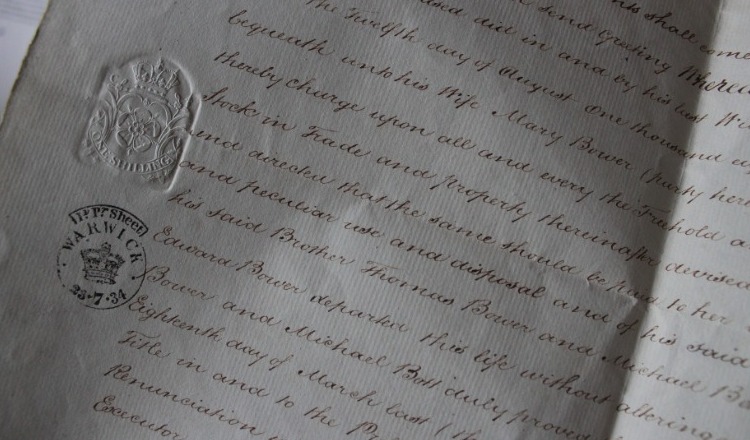 send Greeting Whereas
used did in and by his last Will
the Twelfth day of August One thousand
bequeath unto his Wife Mary Bower (party here
thereby charge upon all and every the Freehold
Stock in Trade and property thereinafter devised
and directed that the same should be paid to her
and peculiar use and disposal and of his said
his said Brother Thomas Bower and Michael
Edward Bower departed this life without altering
Bower and Michael Bott duly proved
Eighteenth day of March last (the
Title in and to the
Renunciation
Executor
ONE SHILLING
11s Pr Sheet
WARWICK
23·7·34